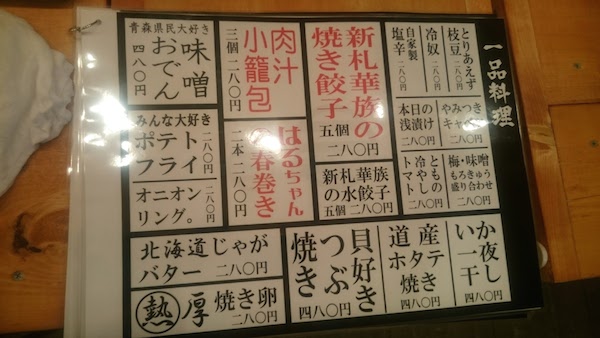 一品料理
とりあえず
枝豆
二八〇円
冷奴
二八〇円
自家製
塩辛
二八〇円
やみつき
キャベ
二八〇円
本日の
浅漬け
二八〇円
梅・味噌
もろきゅう
盛り合わせ
二八〇円
ともの
冷やし
トマト
二八〇円
新札華族の
焼き餃子
五個
二八〇円
新札華族
の水餃子
五個 二八〇円
肉汁
小籠包
三個 二八〇円
はるちゃん
の春巻き
二本 二八〇円
青森県民大好き
味噌
おでん
四八〇円
みんな大好き
ポテト
フライ
二八〇円
オニオン
リング。
二八〇円
か夜し
い一干
四八〇円
道産
ホタテ
焼き
四八〇円
貝好き
つぶ
焼き
四八〇円
北海道じゃが
バター
二八〇円
熱厚焼き卵
二八〇円